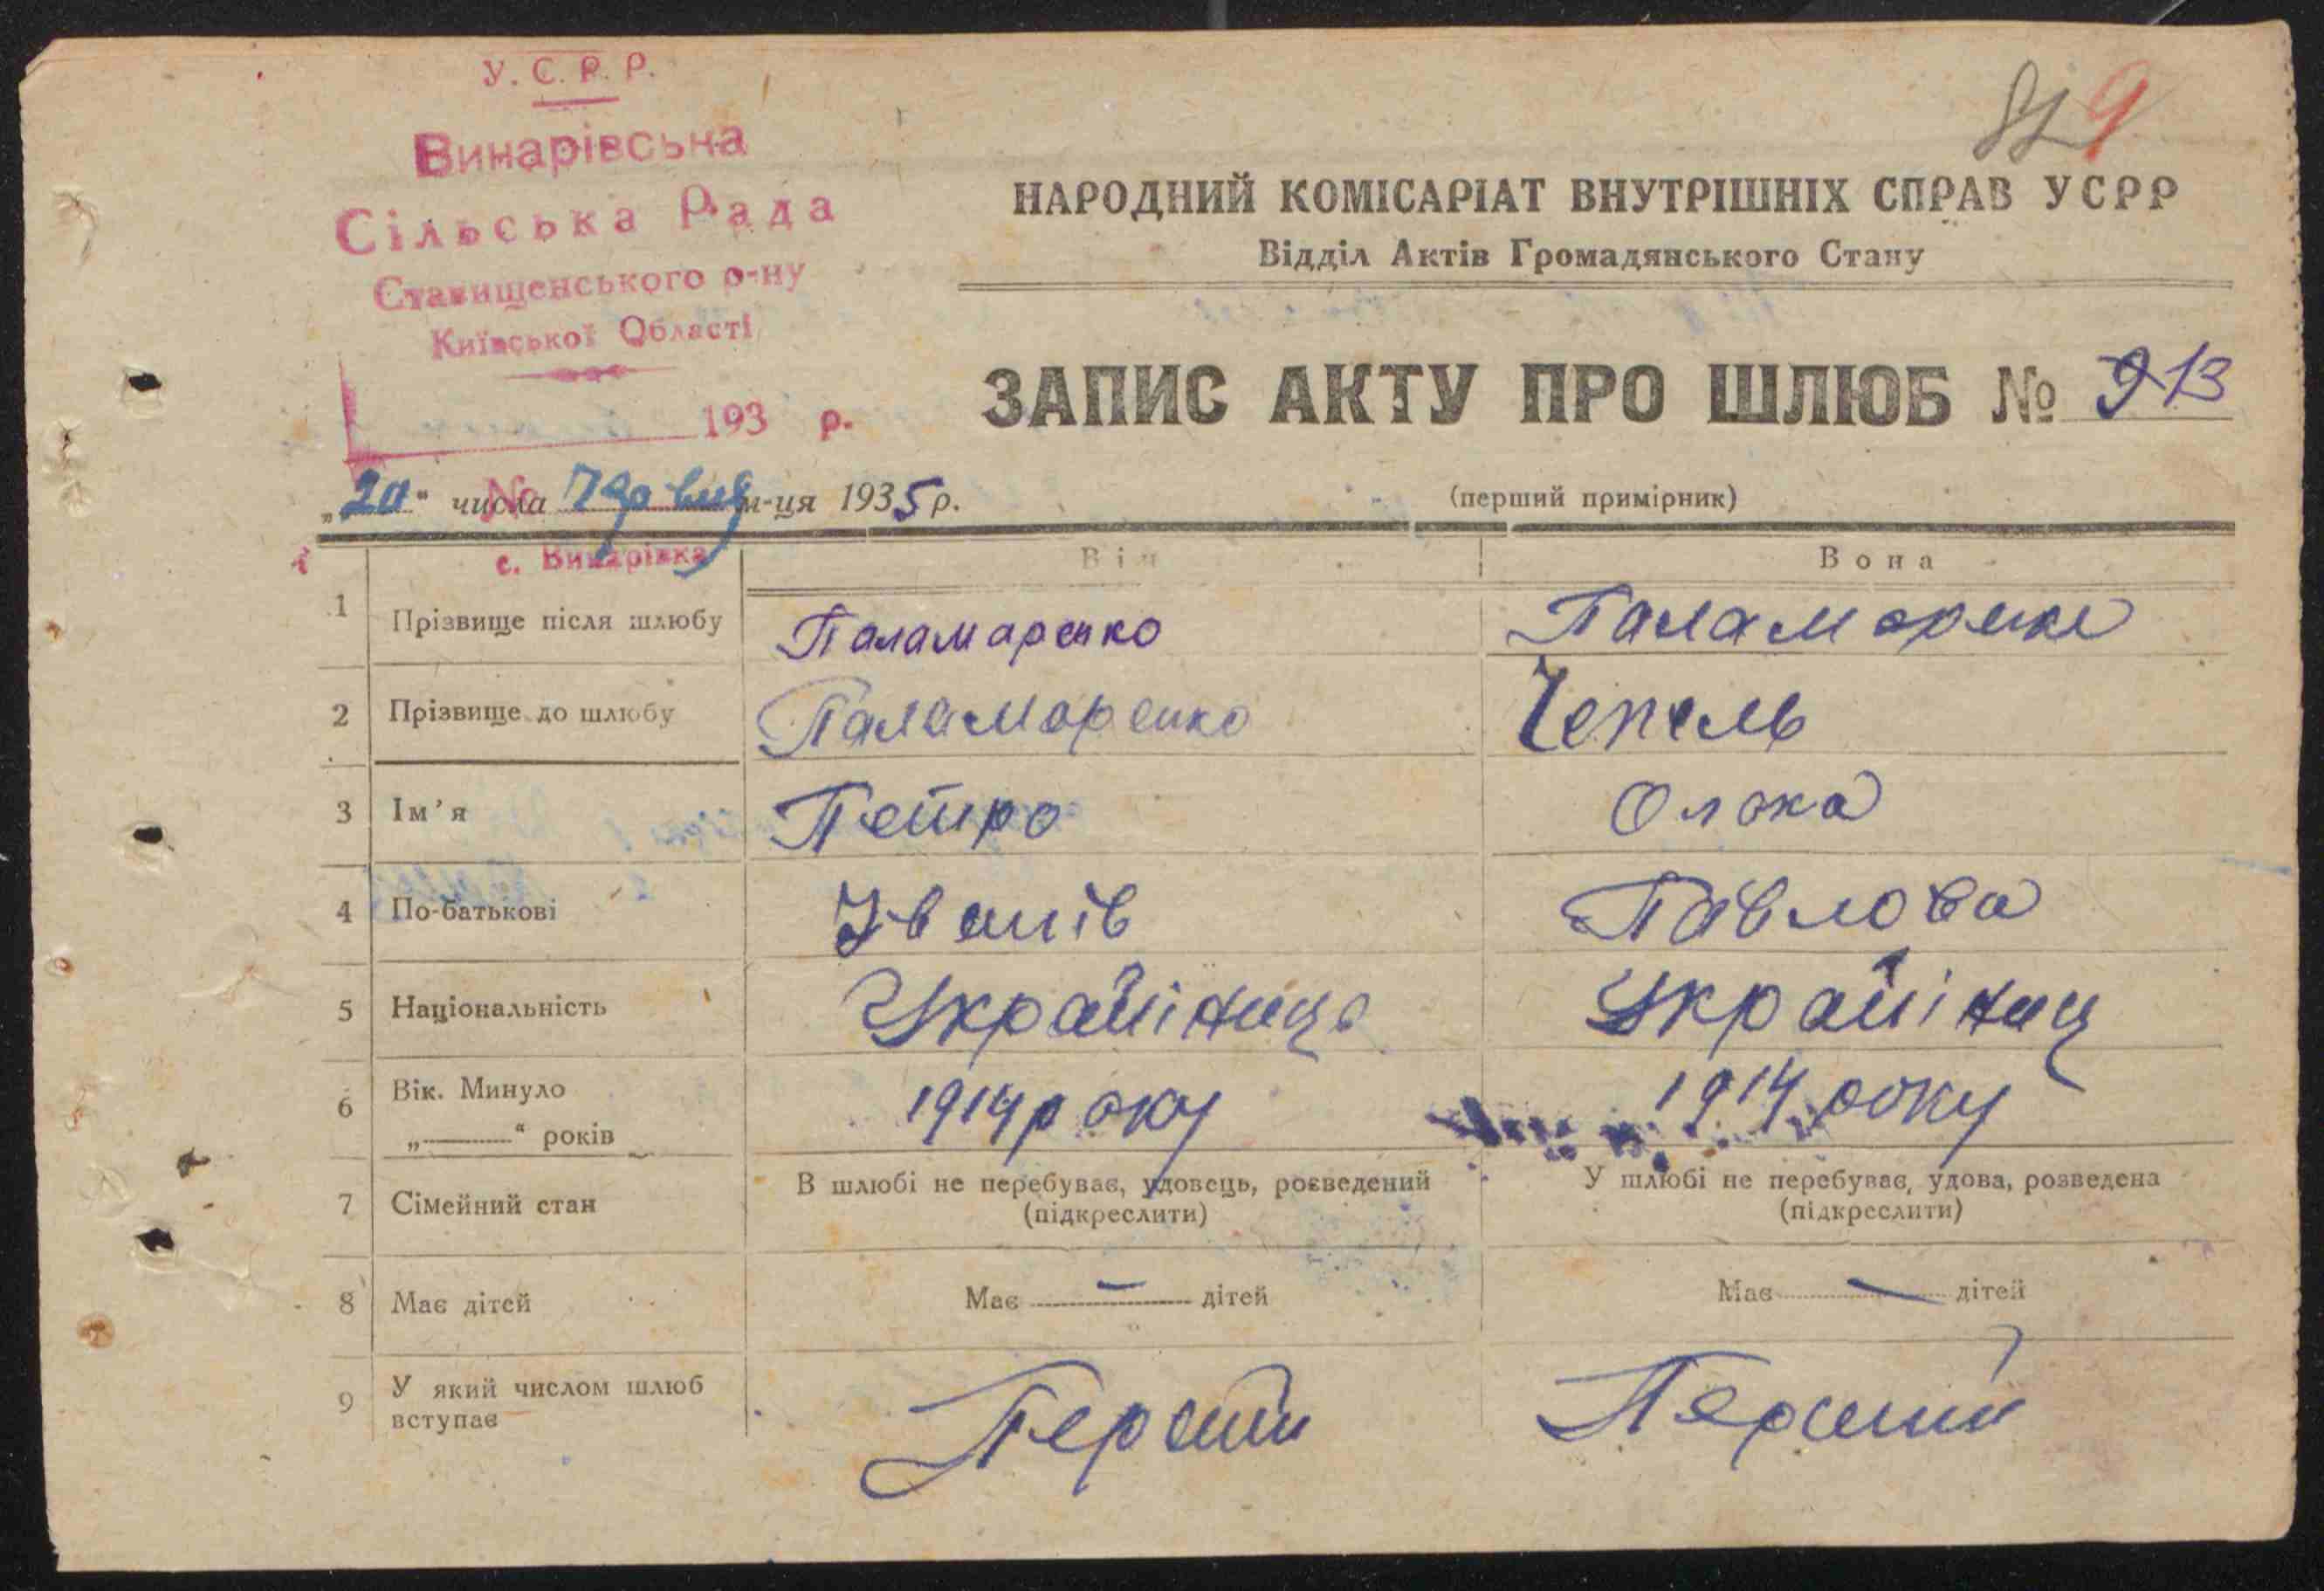 У. С. Р. Р.
Винарівська
Сільська Рада
Ставищенського р-ну
Київської Області
193 р.
№
с. Винарівка
9
НАРОДНИЙ КОМІСАРІАТ ВНУТРІШНІХ СПРАВ УСРР
Відділ Актів Громадянського Стану
ЗАПИС АКТУ ПРО ШЛЮБ № 13
„20“ числа м-ця 1935 р.
(перший примірник)
Він Вона
1 Прізвище після шлюбу Паламаренко Паламоренко
2 Прізвище до шлюбу Паламоренко Чепель
3 Ім’я Петро
4 По-батькові Іванів Павлова
5 Національність
6 Вік. Минуло 1914 року 1914 року
„ “ років
7 Сімейний стан В шлюбі не перебуває, удовець, розведений У шлюбі не перебуває, удова, розведена
(підкреслити) (підкреслити)
8 Має дітей Має — дітей Має — дітей
9 У який числом шлюб Перший Перший
вступає